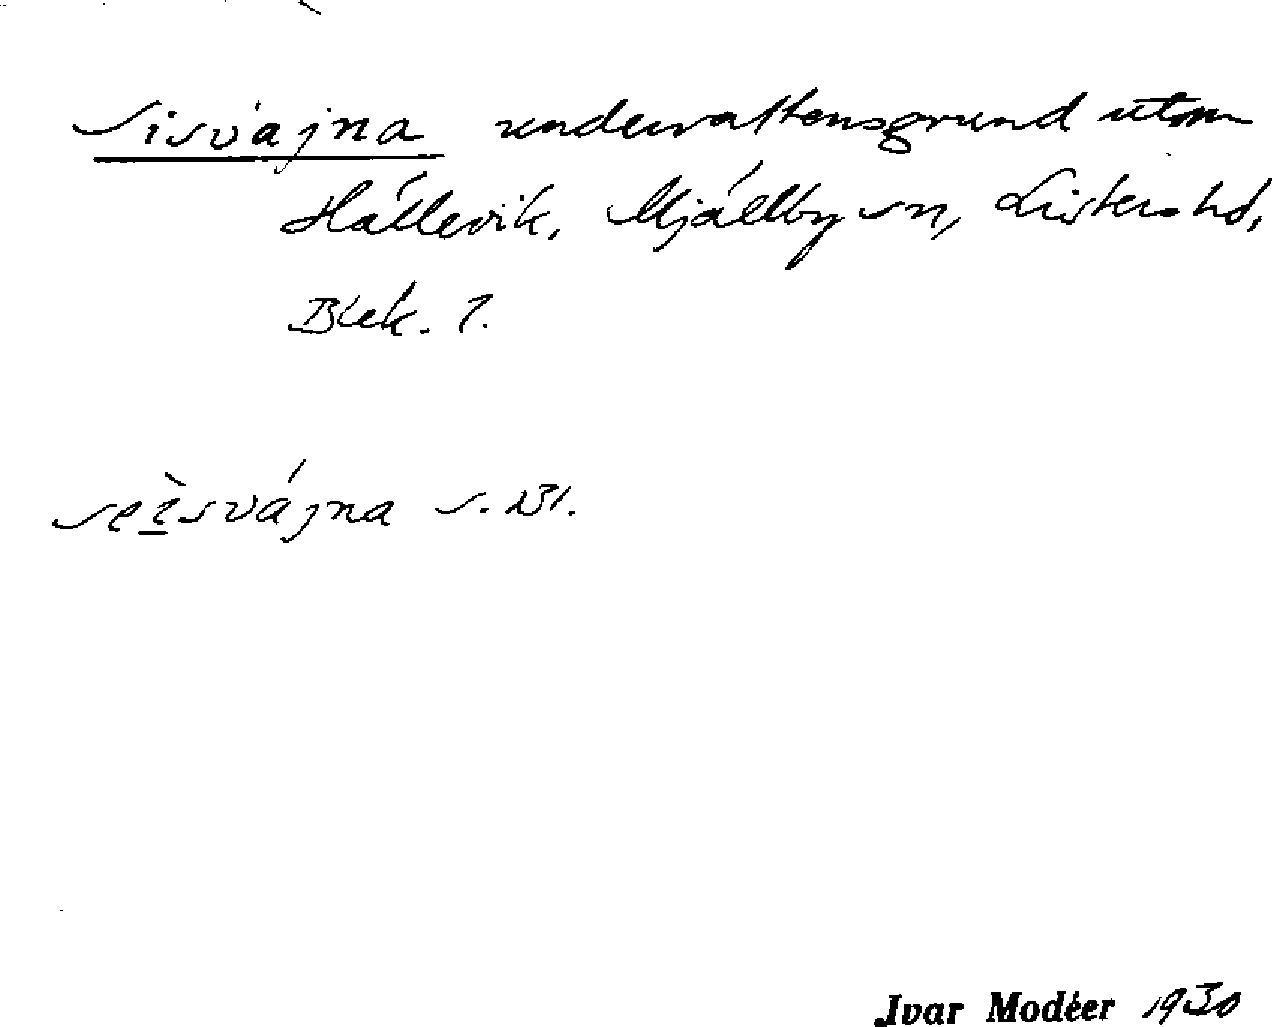 sisvájna undervattensgrund utom
Hällevik, Mjällby sn, Listers hd,
Blek. l.
seìsvájna s. 131.
Ivar Modéer 1930